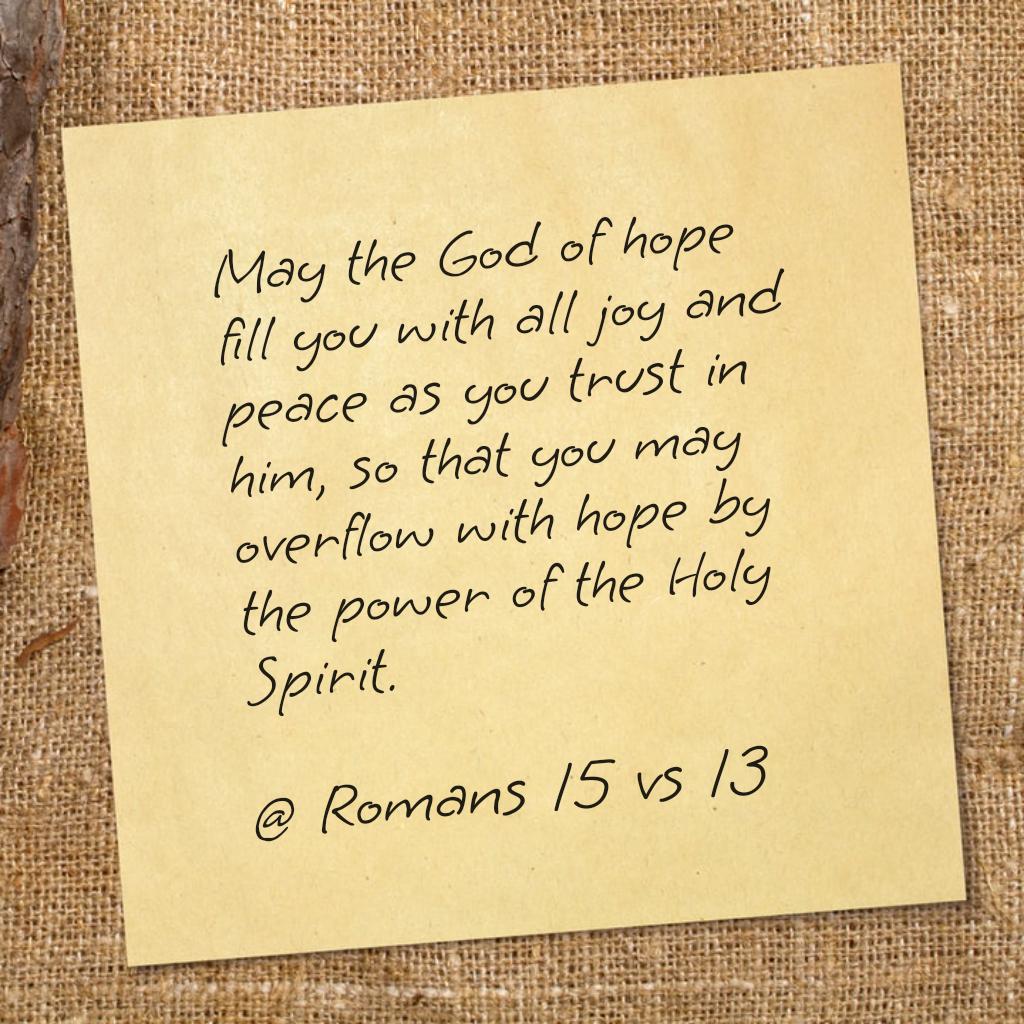 May the God of hope
fill you with all joy and
peace as you trust in
him, so that you may
overflow with hope by
the power of the Holy
Spirit.
@ Romans 15 vs 13